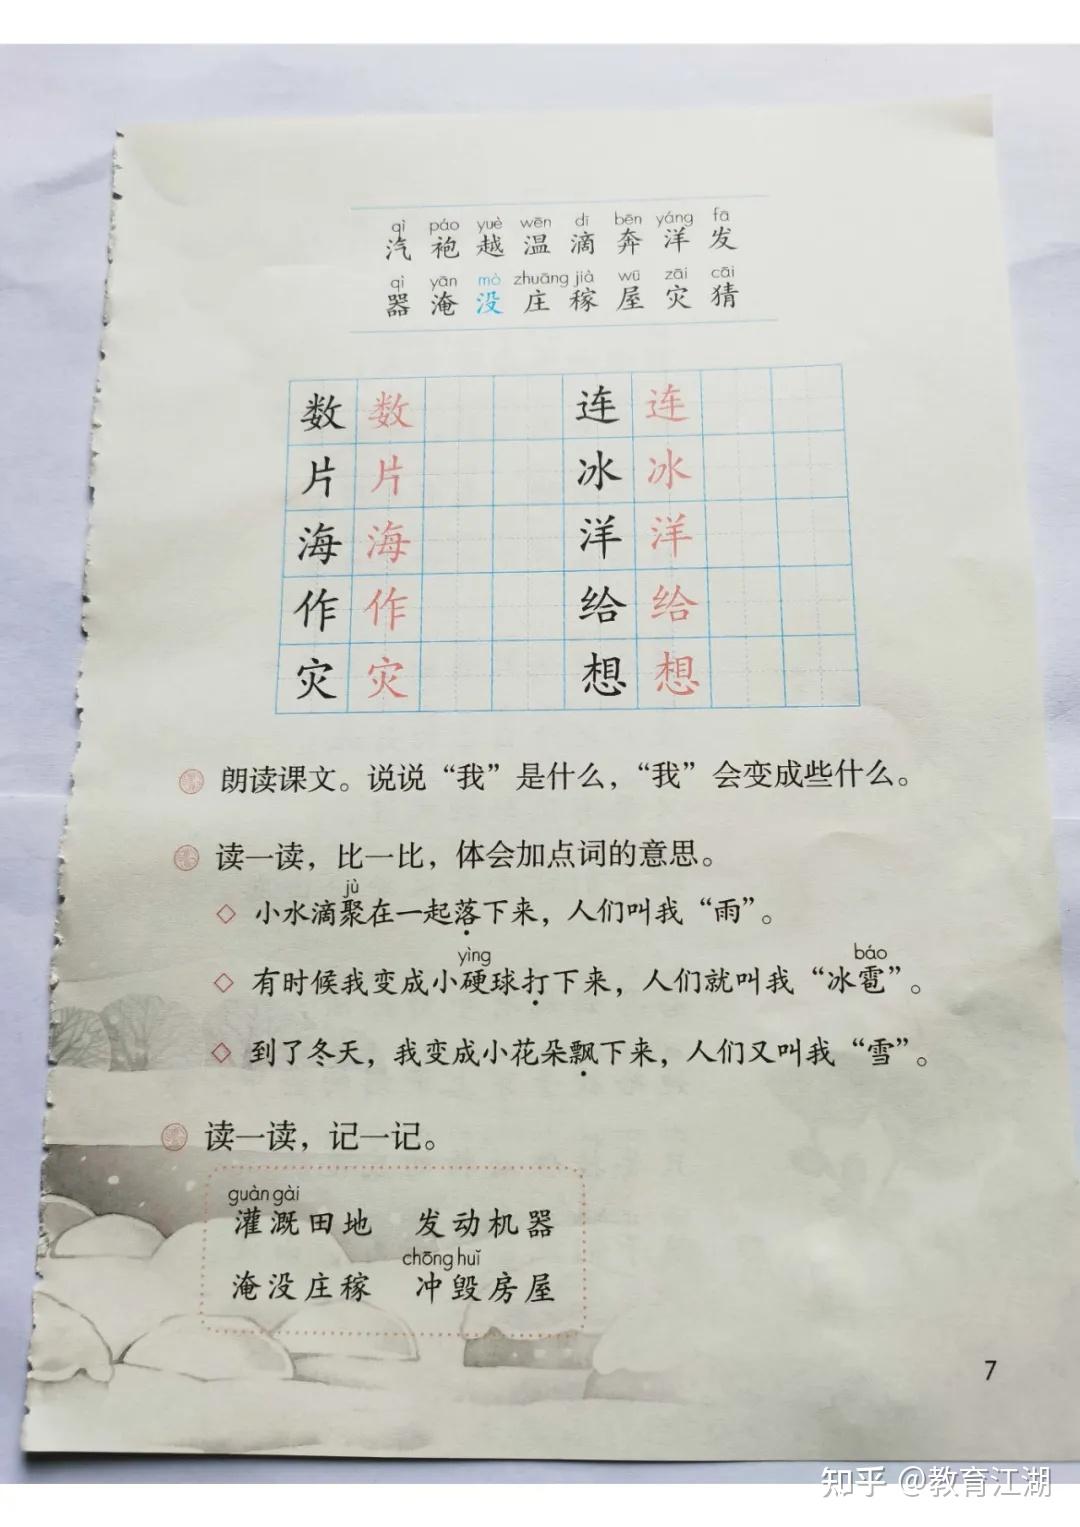 qì páo yuè wēn dī bēn yáng fā
汽 袍 越 温 滴 奔 洋 发
qì yān mò zhuāng jià wū zāi cāi
器 淹 没 庄 稼 屋 灾 猜
数 数 连 连
片 片 冰 冰
海 海 洋 洋
作 作 给 给
灾 灾 想 想
朗读课文。说说“我”是什么，“我”会变成些什么。
读一读，比一比，体会加点词的意思。
jù
◇ 小水滴聚在一起落下来，人们叫我“雨”。
yìng báo
◇ 有时候我变成小硬球打下来，人们就叫我“冰雹”。
◇ 到了冬天，我变成小花朵飘下来，人们又叫我“雪”。
读一读，记一记。
guàn gài
灌溉田地 发动机器
chōng huǐ
淹没庄稼 冲毁房屋
7
知乎 @教育江湖